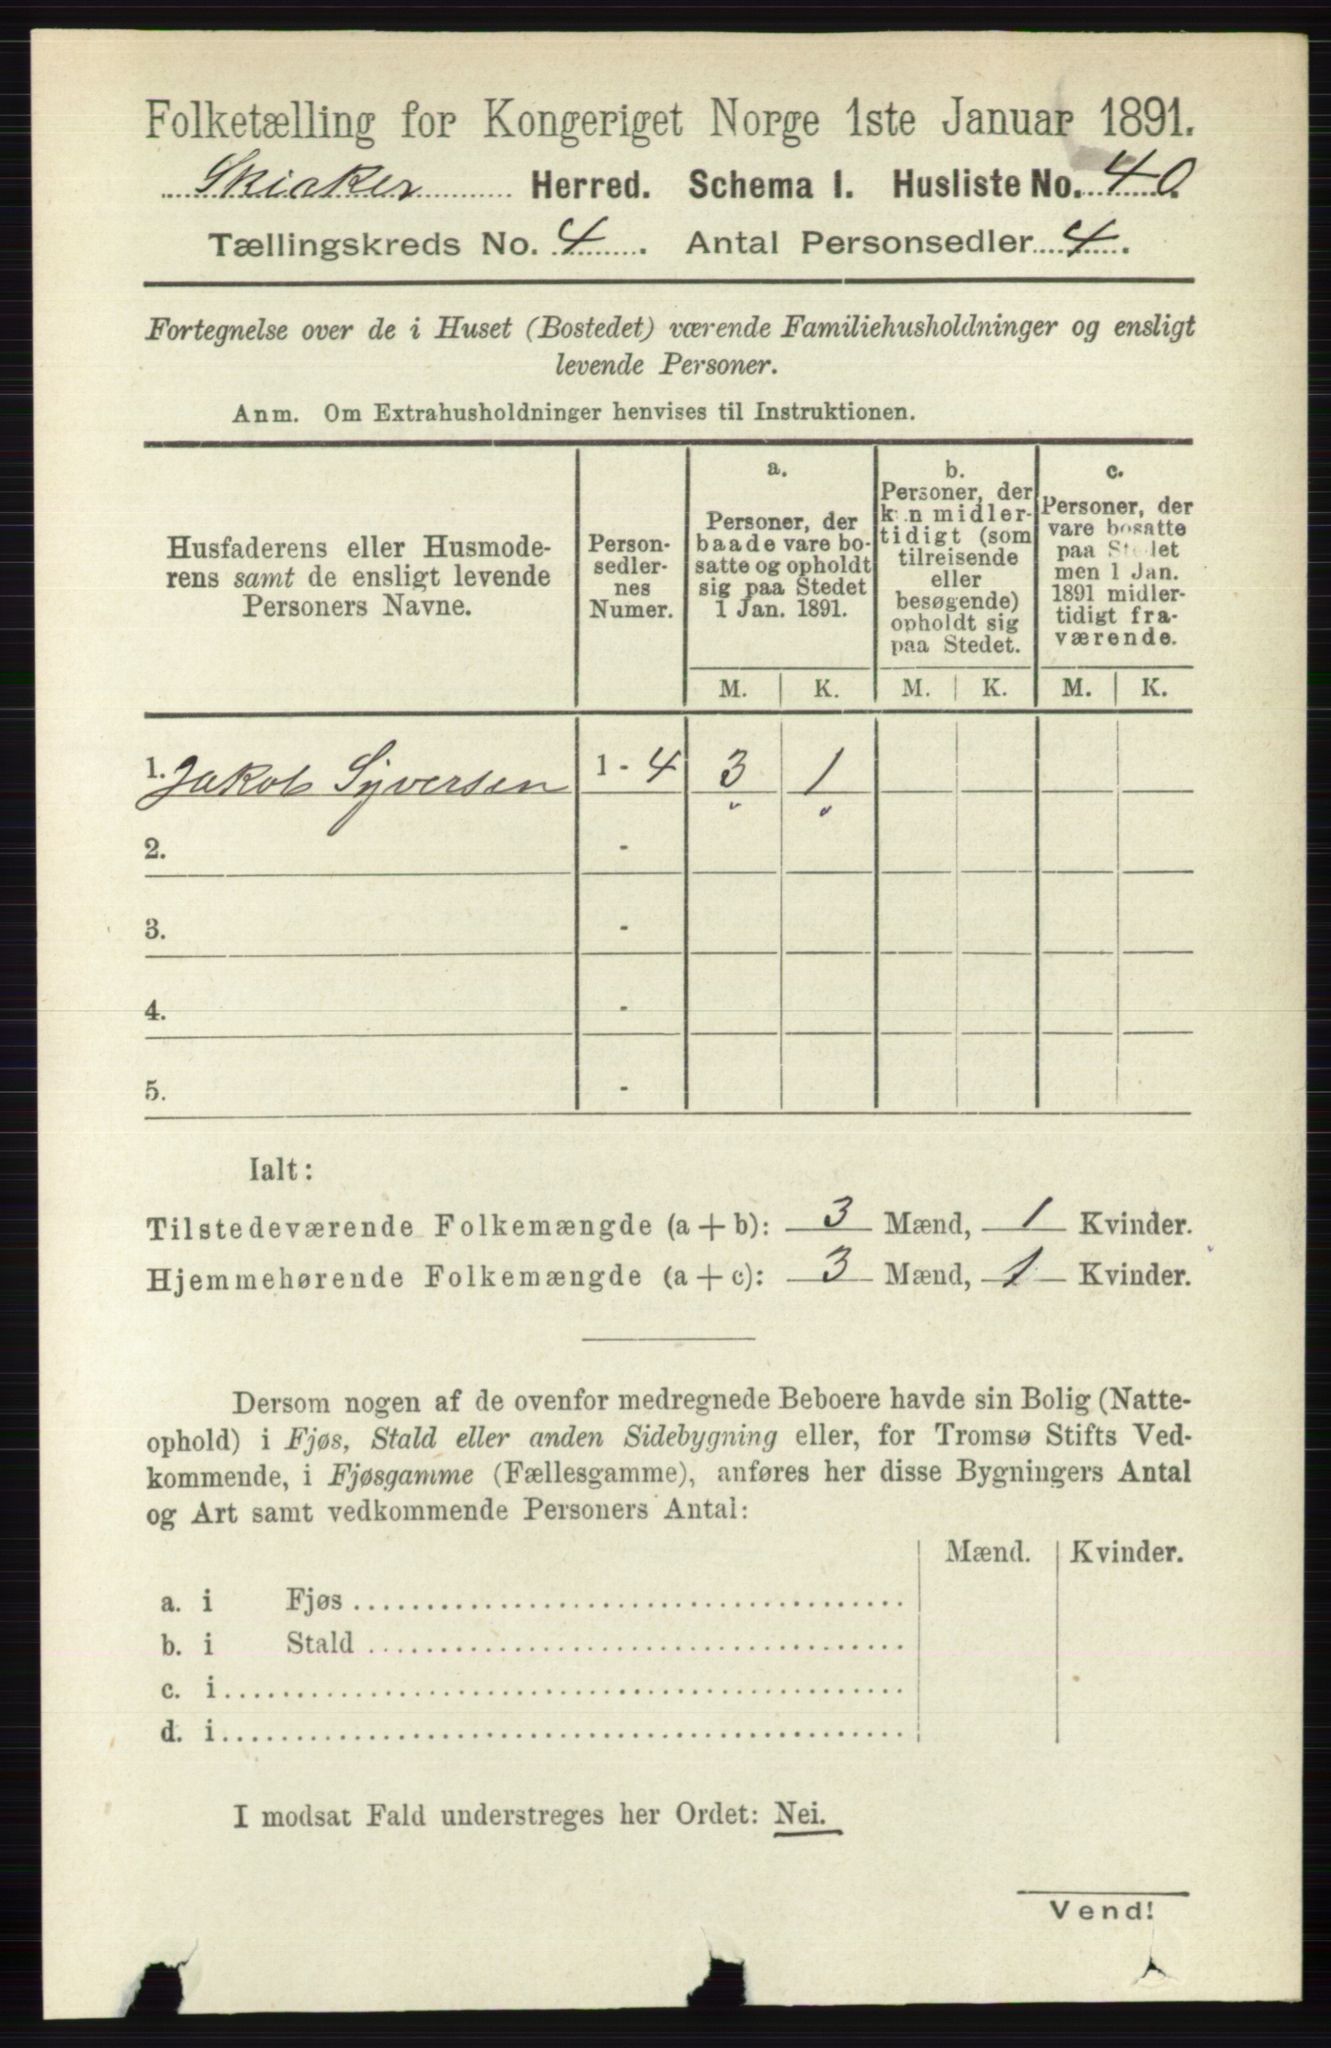 Folketælling for Kongeriget Norge 1ste Januar 1891.
Skiaker Herred. Schema 1. Husliste No. 40
Tællingskreds No. 4. Antal Personsedler 4.
Fortegnelse over de i Huset (Bostedet) værende Familiehusholdninger og ensligt
levende Personer.
Anm. Om Extrahusholdninger henvises til Instruktionen.
Husfaderens eller Husmode-
rens samt de ensligt levende
Personers Navne.
Person-
sedler-
nes
Numer.
a.
Personer, der
baade vare bo-
satte og opholdt
sig paa Stedet
1 Jan. 1891.
b.
Personer, der
kun midler-
tidigt (som
tilreisende
eller
besøgende)
opholdt sig
paa Stedet.
c.
Personer, der
vare bosatte
paa Stedet
men 1 Jan.
1891 midler-
tidigt fra-
værende.
M. K. M. K. M. K.
1. Jakob Syversen 1 - 4 3 1
2. -
3. -
4. -
5. -
Ialt:
Tilstedeværende Folkemængde (a + b): 3 Mænd, 1 Kvinder.
Hjemmehørende Folkemængde (a + c): 3 Mænd, 1 Kvinder.
Dersom nogen af de ovenfor medregnede Beboere havde sin Bolig (Natte-
ophold) i Fjøs, Stald eller anden Sidebygning eller, for Tromsø Stifts Ved-
kommende, i Fjøsgamme (Fællesgamme), anføres her disse Bygningers Antal
og Art samt vedkommende Personers Antal:
Mænd. Kvinder.
a. i Fjøs
b. i Stald
c. i
d. i
I modsat Fald understreges her Ordet: Nei.
Vend!